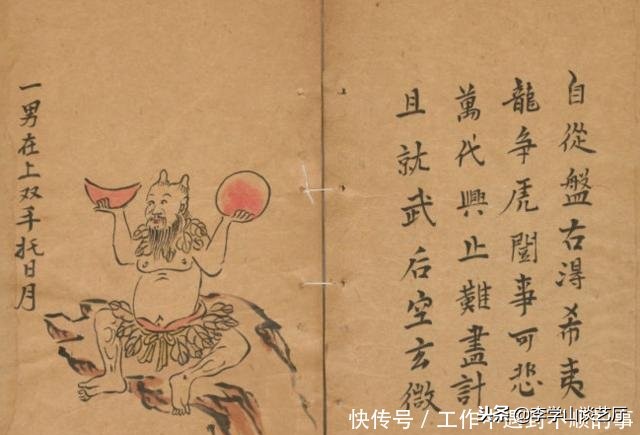 自從盤古淂希夷
龍争虎鬪事可悲
萬代興止難盡計
且就武后空玄微
一男在上双手托日月
头条@李学山谈艺厅
快传号 / 工作中遇到不顺的事